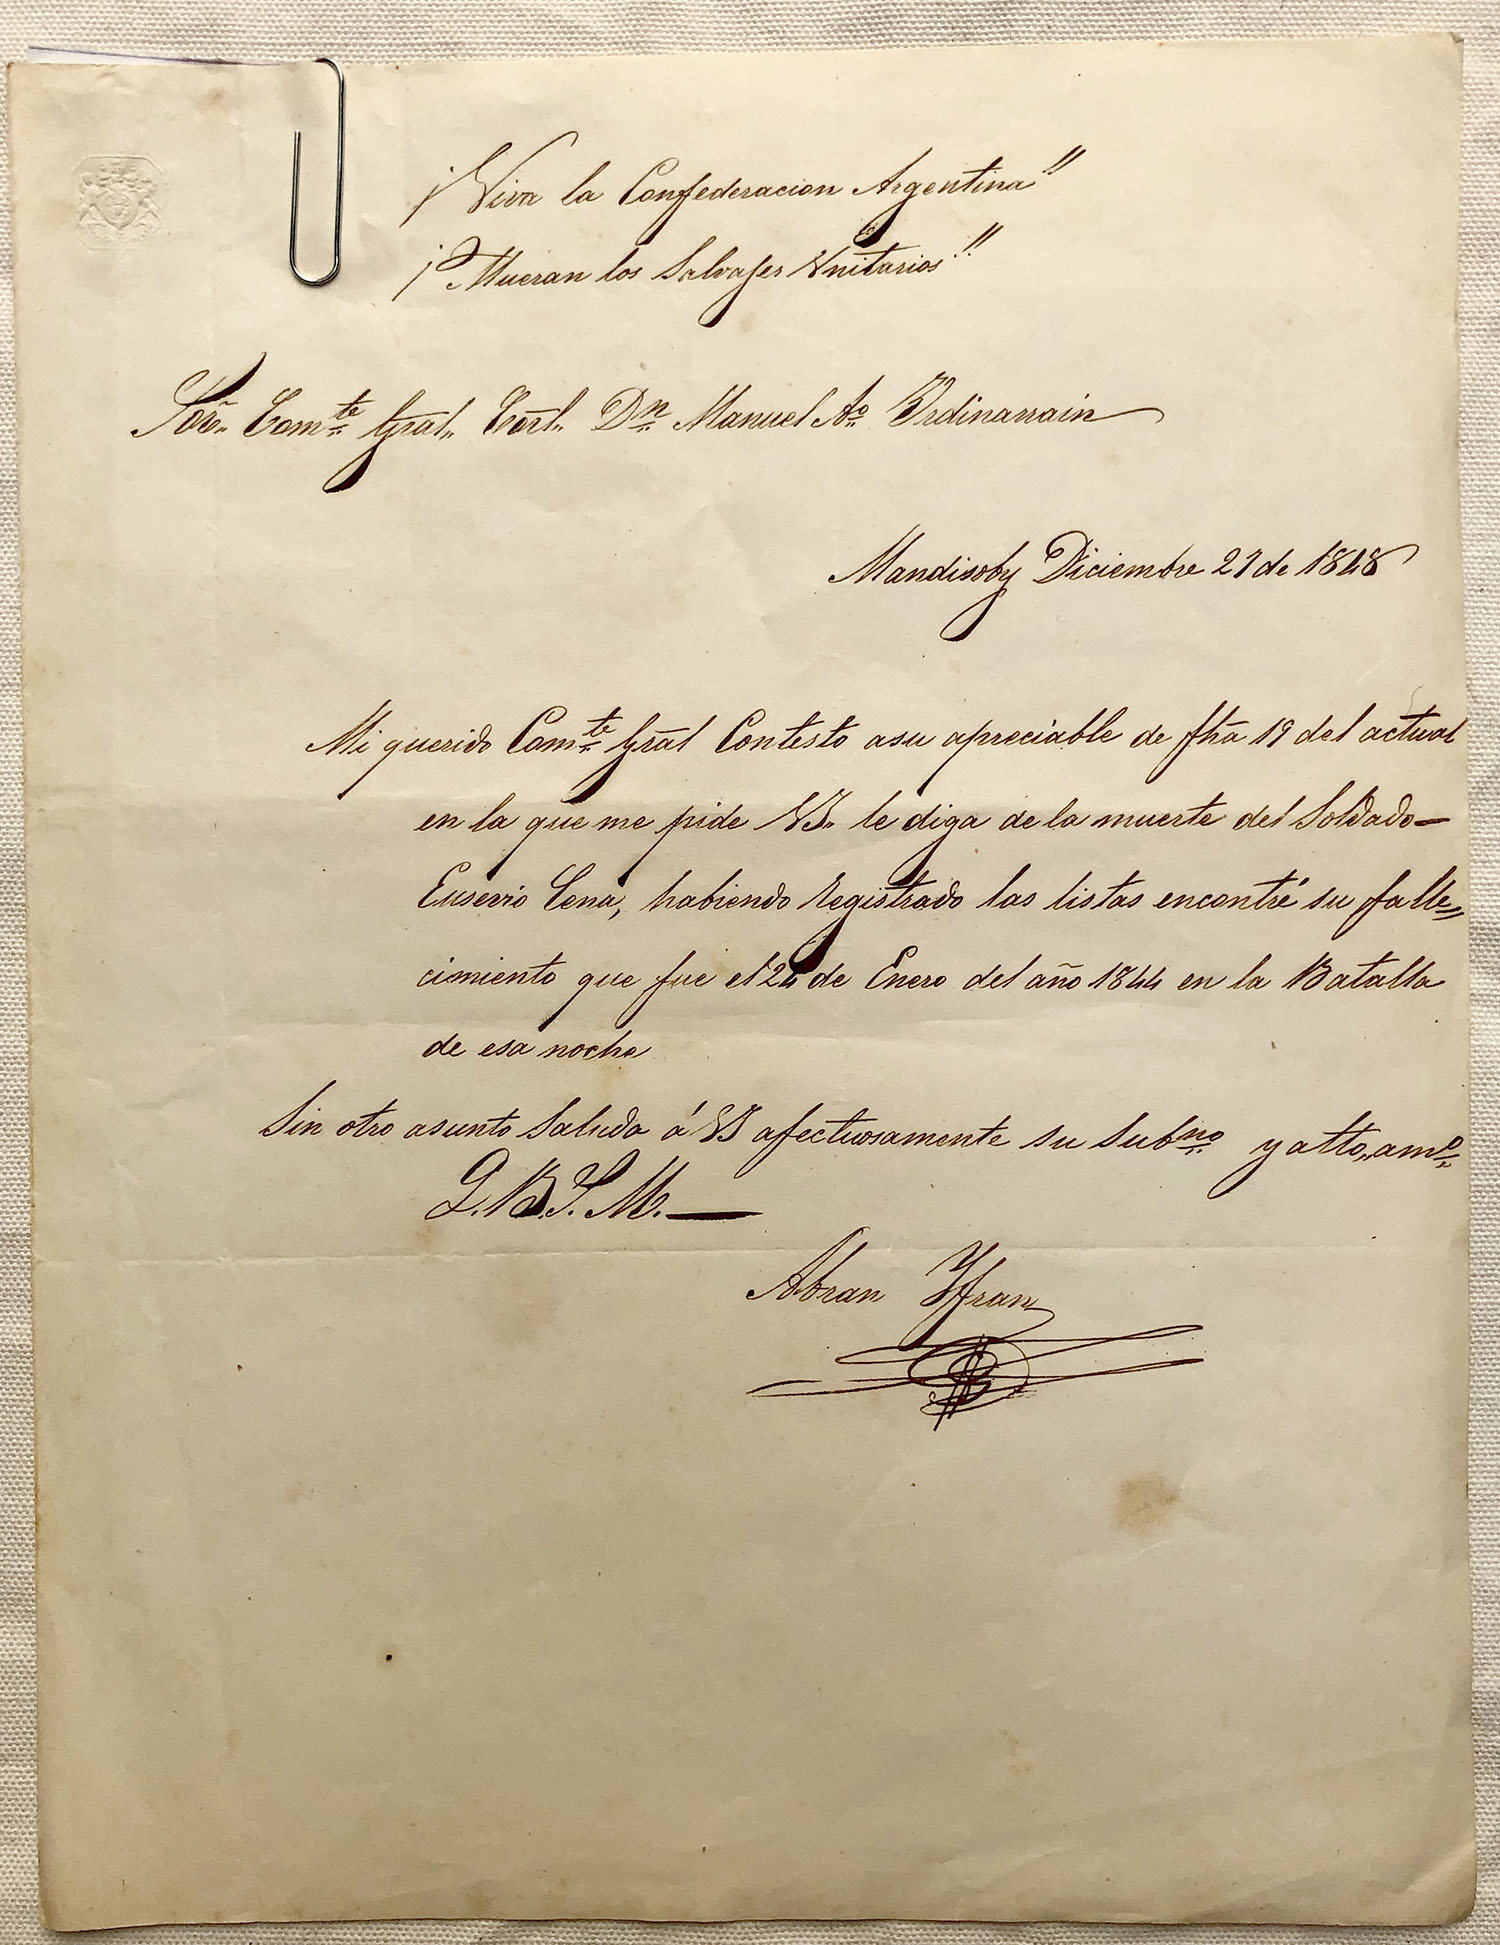 ¡Viva la Confederacion Argentina!!
¡Mueran los Salvajes Unitarios!!
Sor. Comte. Gral. Corl. Dn. Manuel Ao. Urdinarrain
Mandisoby Diciembre 27 de 1848
Mi querido Comte. Gral Contesto asu apreciable de fha 19 del actual
en la que me pide VS. le diga de la muerte del Soldado
Eusevio Cena, habiendo registrado las listas encontré su falle=
cimiento que fue el 24 de Enero del año 1844 en la Batalla
de esa noche
Sin otro asunto Saluda á VS afectuosamente su Subno. y atto. amo.
Q. B. S. M.
Abran Yfran